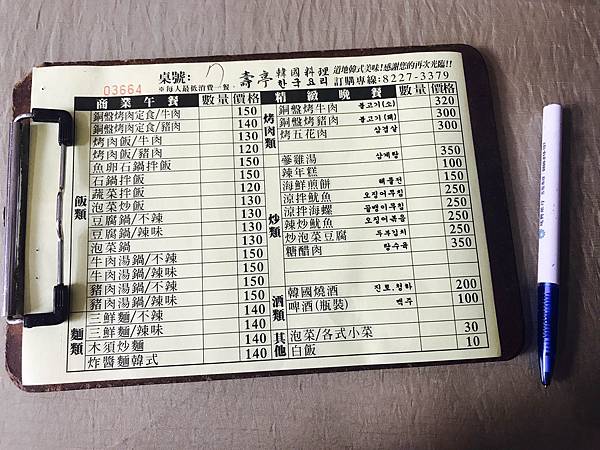 桌號: 2 壽亭 韓國料理 한국요리 道地韓式美味!感謝您的再次光臨!!
03664 ※每人最低消費一餐 訂購專線:8227-3379
商業午餐 數量 價格
飯類
銅盤烤肉定食/牛肉 150
銅盤烤肉定食/豬肉 140
烤肉飯/牛肉 130
烤肉飯/豬肉 120
魚卵石鍋拌飯 150
石鍋拌飯 120
蔬菜拌飯 130
泡菜炒飯 130
豆腐鍋/不辣 130
豆腐鍋/辣味 130
泡菜鍋 130
牛肉湯鍋/不辣 150
牛肉湯鍋/辣味 150
豬肉湯鍋/不辣 140
豬肉湯鍋/辣味 140
麵類
三鮮麵/不辣 140
三鮮麵/辣味 140
木須炒麵 140
炸醬麵韓式 140
精緻晚餐 數量 價格
烤肉類
銅盤烤牛肉 불고기(소) 320
銅盤烤豬肉 불고기(돼) 300
烤五花肉 삼겹살 300
炒類
蔘雞湯 삼계탕 350
辣年糕 100
海鮮煎餅 해물전 150
涼拌魷魚 오징어무침 250
涼拌海螺 골뱅이무침 250
辣炒魷魚 오징어볶음 250
炒泡菜豆腐 두부김치 250
糖醋肉 탕수육 350
酒類
韓國燒酒 진로,청하 200
啤酒(瓶裝) 맥주 100
其他
泡菜/各式小菜 30
白飯 10